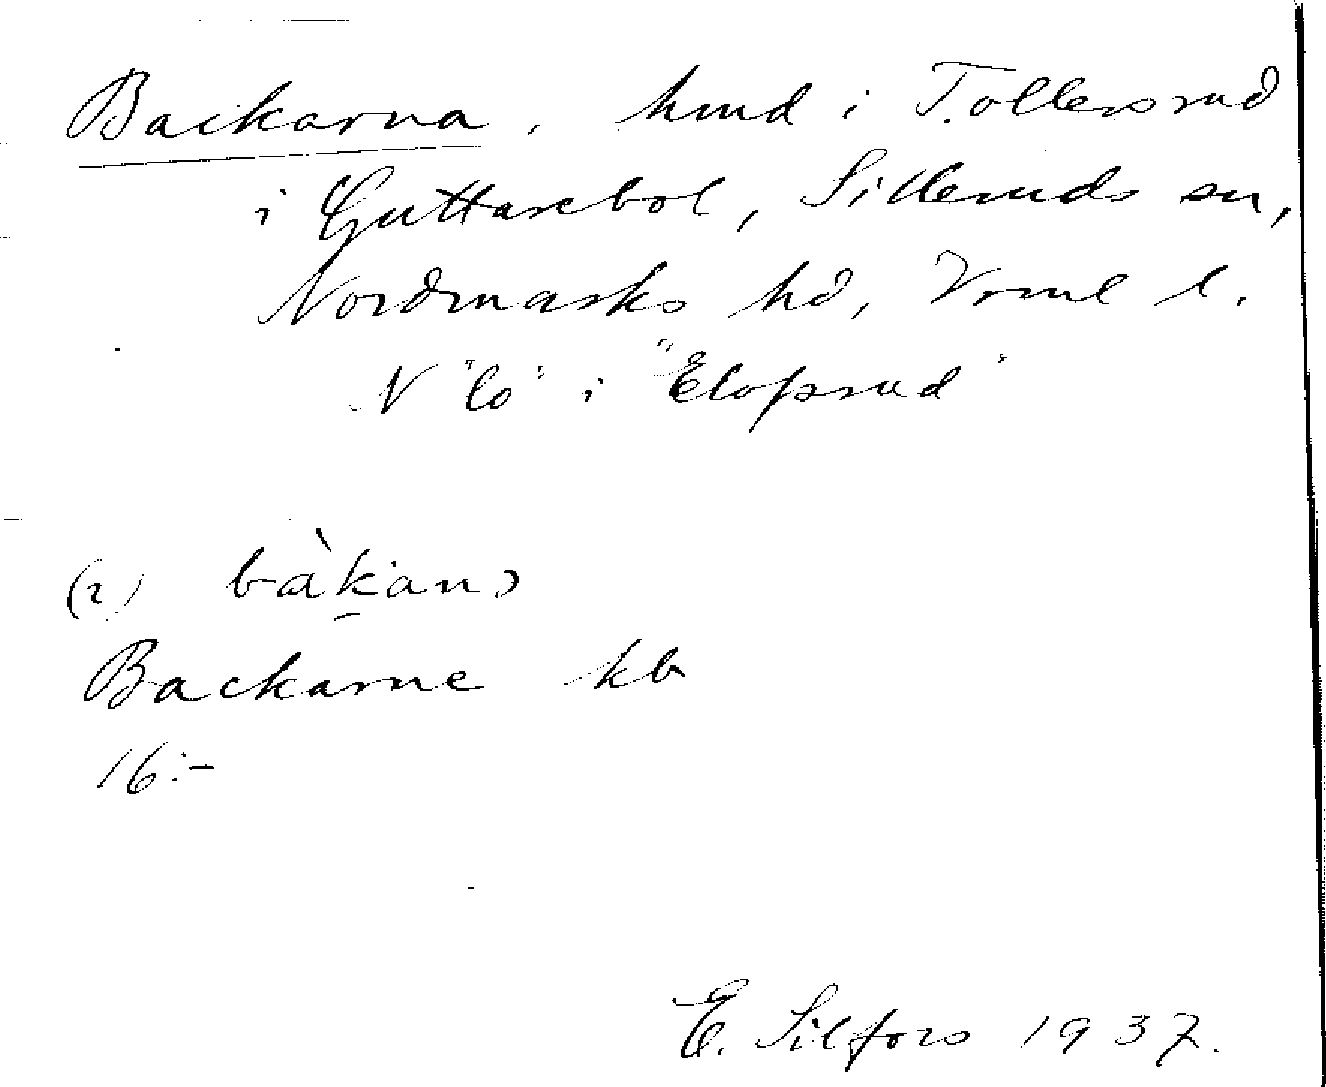 Backarna, hmd i Tollersrud
i Guttarebol, Silleruds sn,
Nordmarks hd, Vrml l.
N "lö" i "Elofsrud"
(2) bàkan
Backarne kb
16:-
E. Silfors 1937.